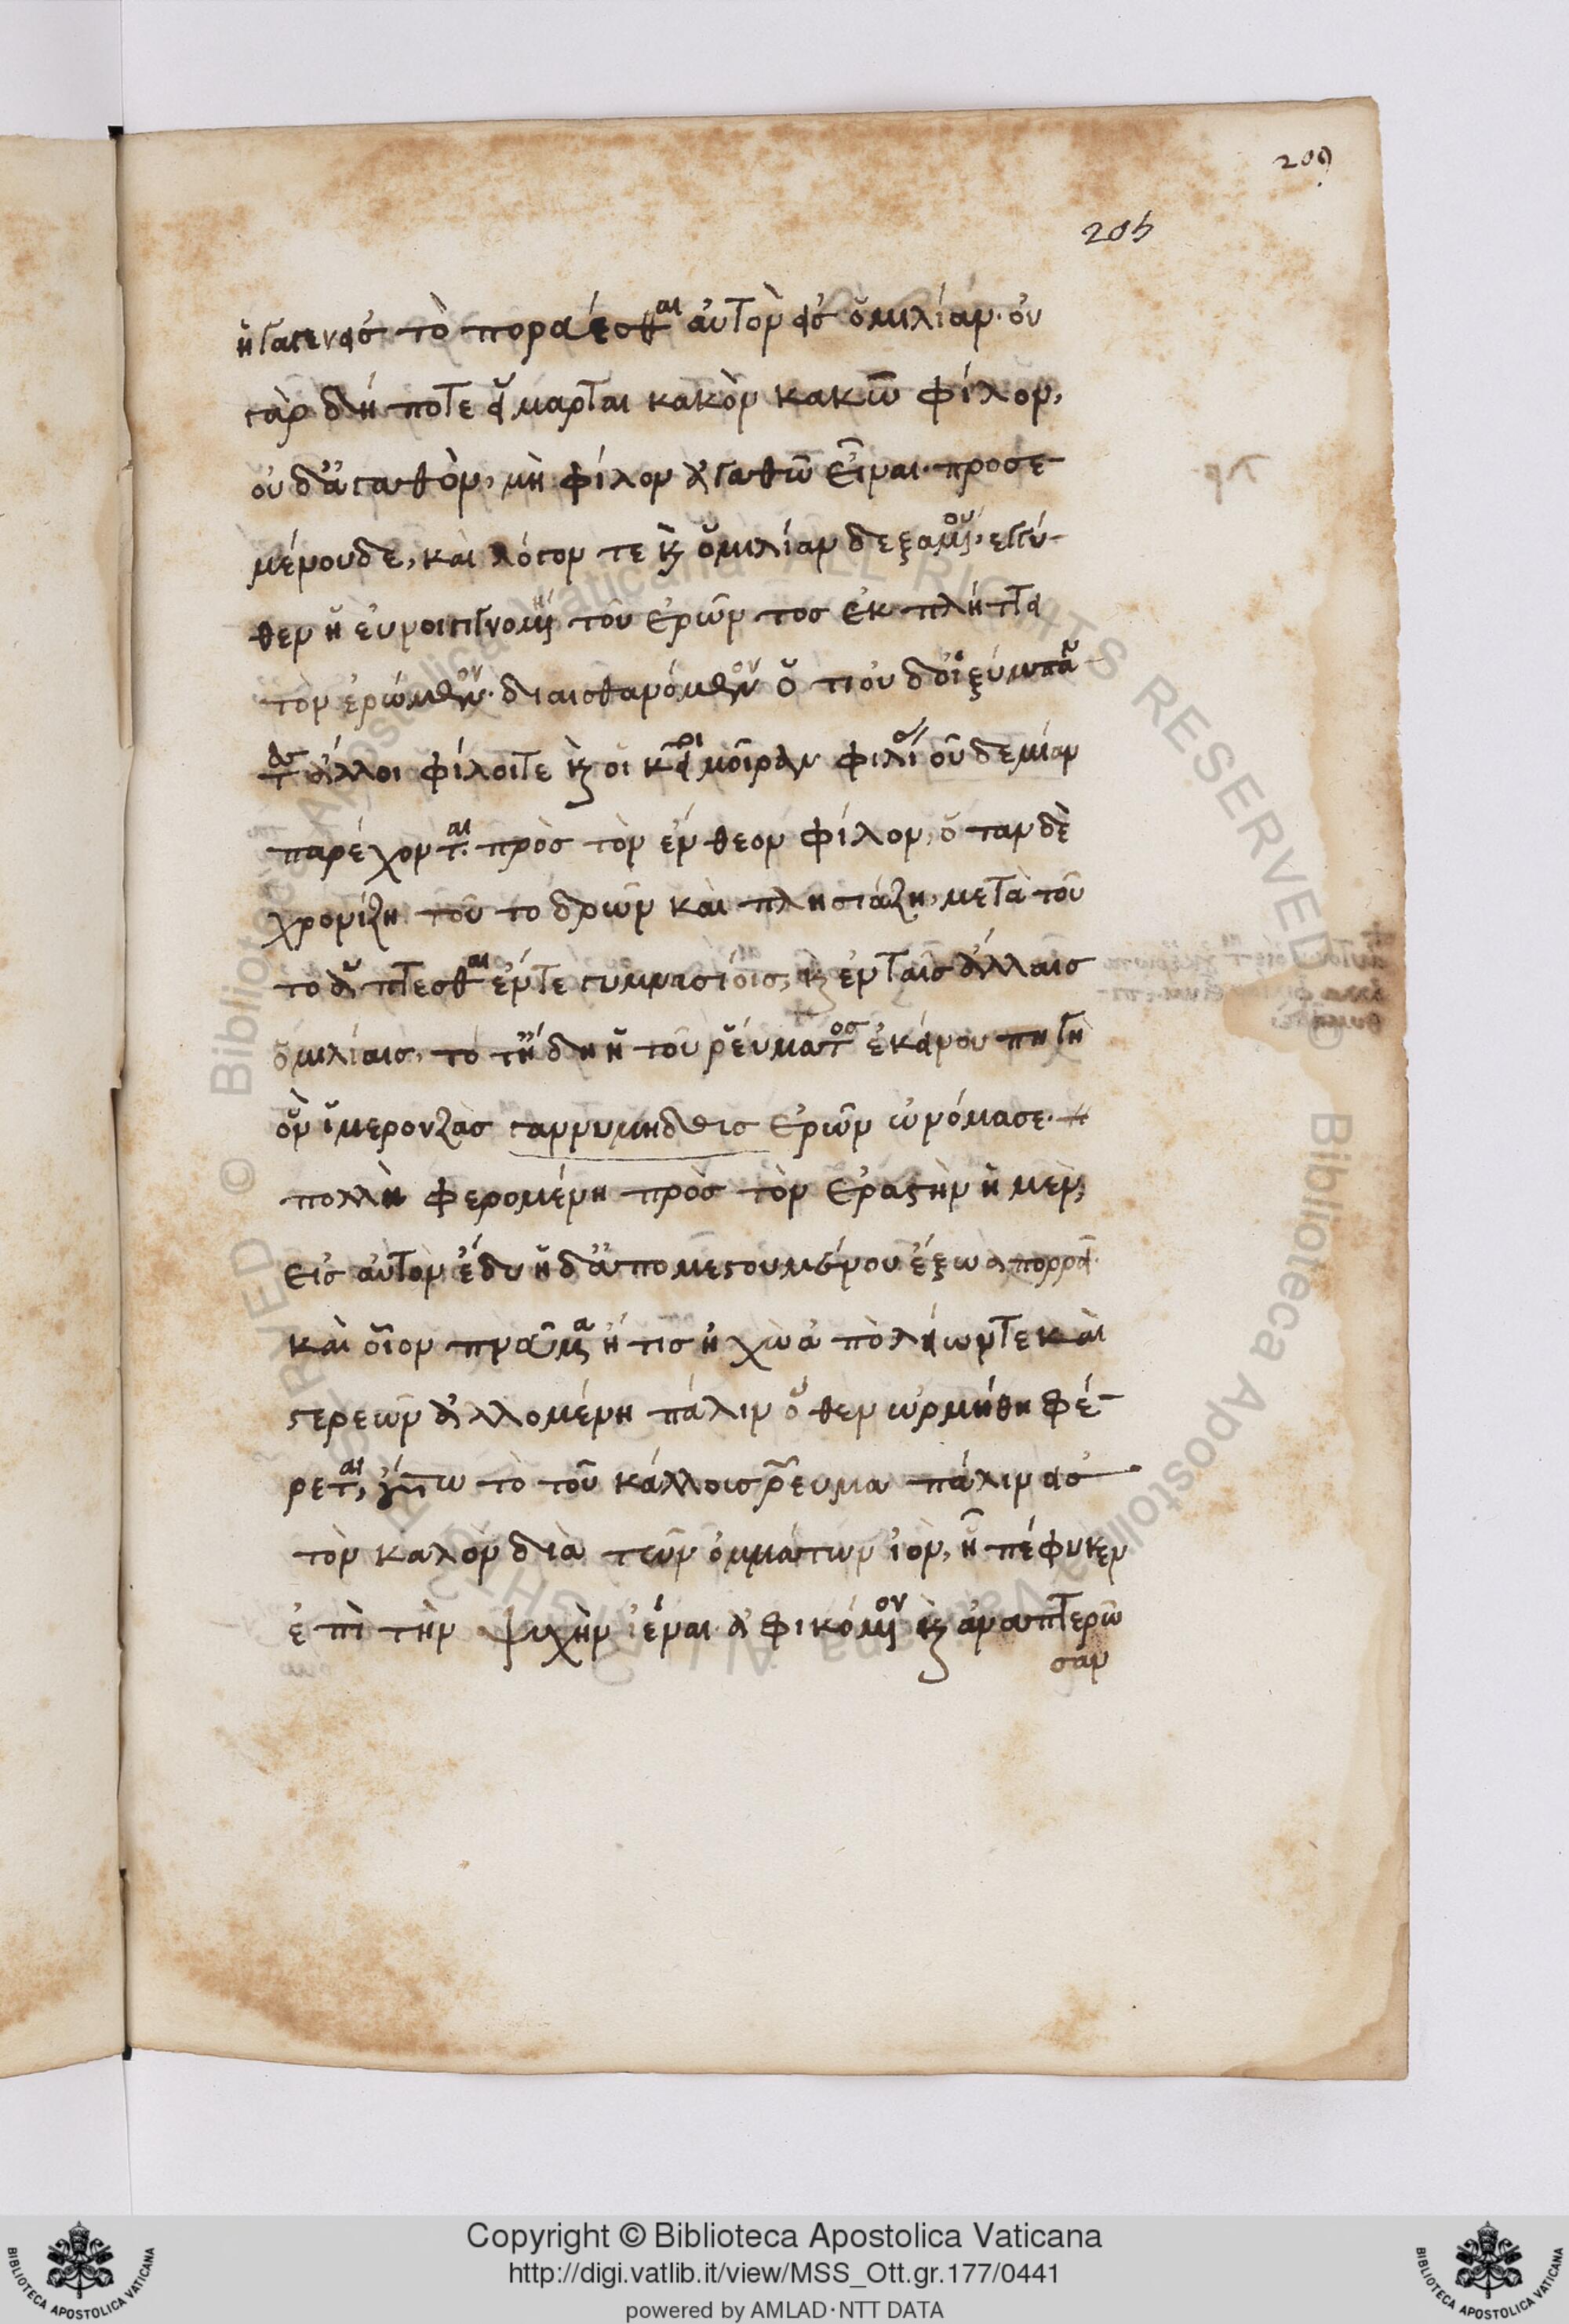 209
205
ἤγαγεν εἰς τὸ προσέσθαι αὐτὸν εἰς ὁμιλίαν· οὐ
γὰρ δήποτε εἵμαρται κακὸν κακῶ φίλον,
οὐδ' ἀγαθὸν, μὴ φίλον ἀγαθῶ εἶναι. προσε
μένου δὲ, καὶ λόγον τε καὶ ὁμιλίαν δεξαμένου, ἐγγύ-
θεν ἡ εὔνοια γιγνομένη τοῦ ἐρῶντος ἐκπλήττει
τὸν ἐρώμενον· διαισθανόμενον ὅτι οὐδ' οἱ ξύμπαν
τες ἄλλοι φίλοι τε καὶ οἰκεῖοι μοῖραν φιλίας οὐδεμίαν
παρέχονται πρὸς τὸν ἔνθεον φίλον, ὅταν δὲ
χρονίζη τοῦτο δρῶν καὶ πλησιάζη, μετὰ τοῦ
τὸ ἅπτεσθαι ἔν τε γυμνασίοις, καὶ ἐν ταῖς ἄλλαις
ὁμιλίαις, τότ' ἤδη ἡ τοῦ ῥεύματος ἐκείνου πηγὴ
ὃν ἵμερον ζὰς γαννυμήδους ἐρῶν ὠνόμασε·
πολλὴ φερομένη πρὸς τὸν ἐραστὴν ἡ μὲν,
εἰς αὐτὸν ἔδυ ἡ δ' ἀπομεστουμένου ἔξω ἀπορρεῖ·
καὶ οἷον πνεῦμα ἤ τις ἠχὼ ἀπὸ λείων τε καὶ
στερεῶν ἁλλομένη πάλιν ὅθεν ὡρμήθη φέ-
ρεται, οὕτω τὸ τοῦ κάλλους ῥεῦμα πάλιν εἰς
τὸν καλὸν διὰ τῶν ὀμμάτων ἰὸν, ἧ πέφυκεν
ἐπὶ τὴν ψυχὴν ἰέναι ἀφικόμενον καὶ ἀναπτερῶ
σαν
Copyright © Biblioteca Apostolica Vaticana
http://digi.vatlib.it/view/MSS_Ott.gr.177/0441
powered by AMLAD·NTT DATA